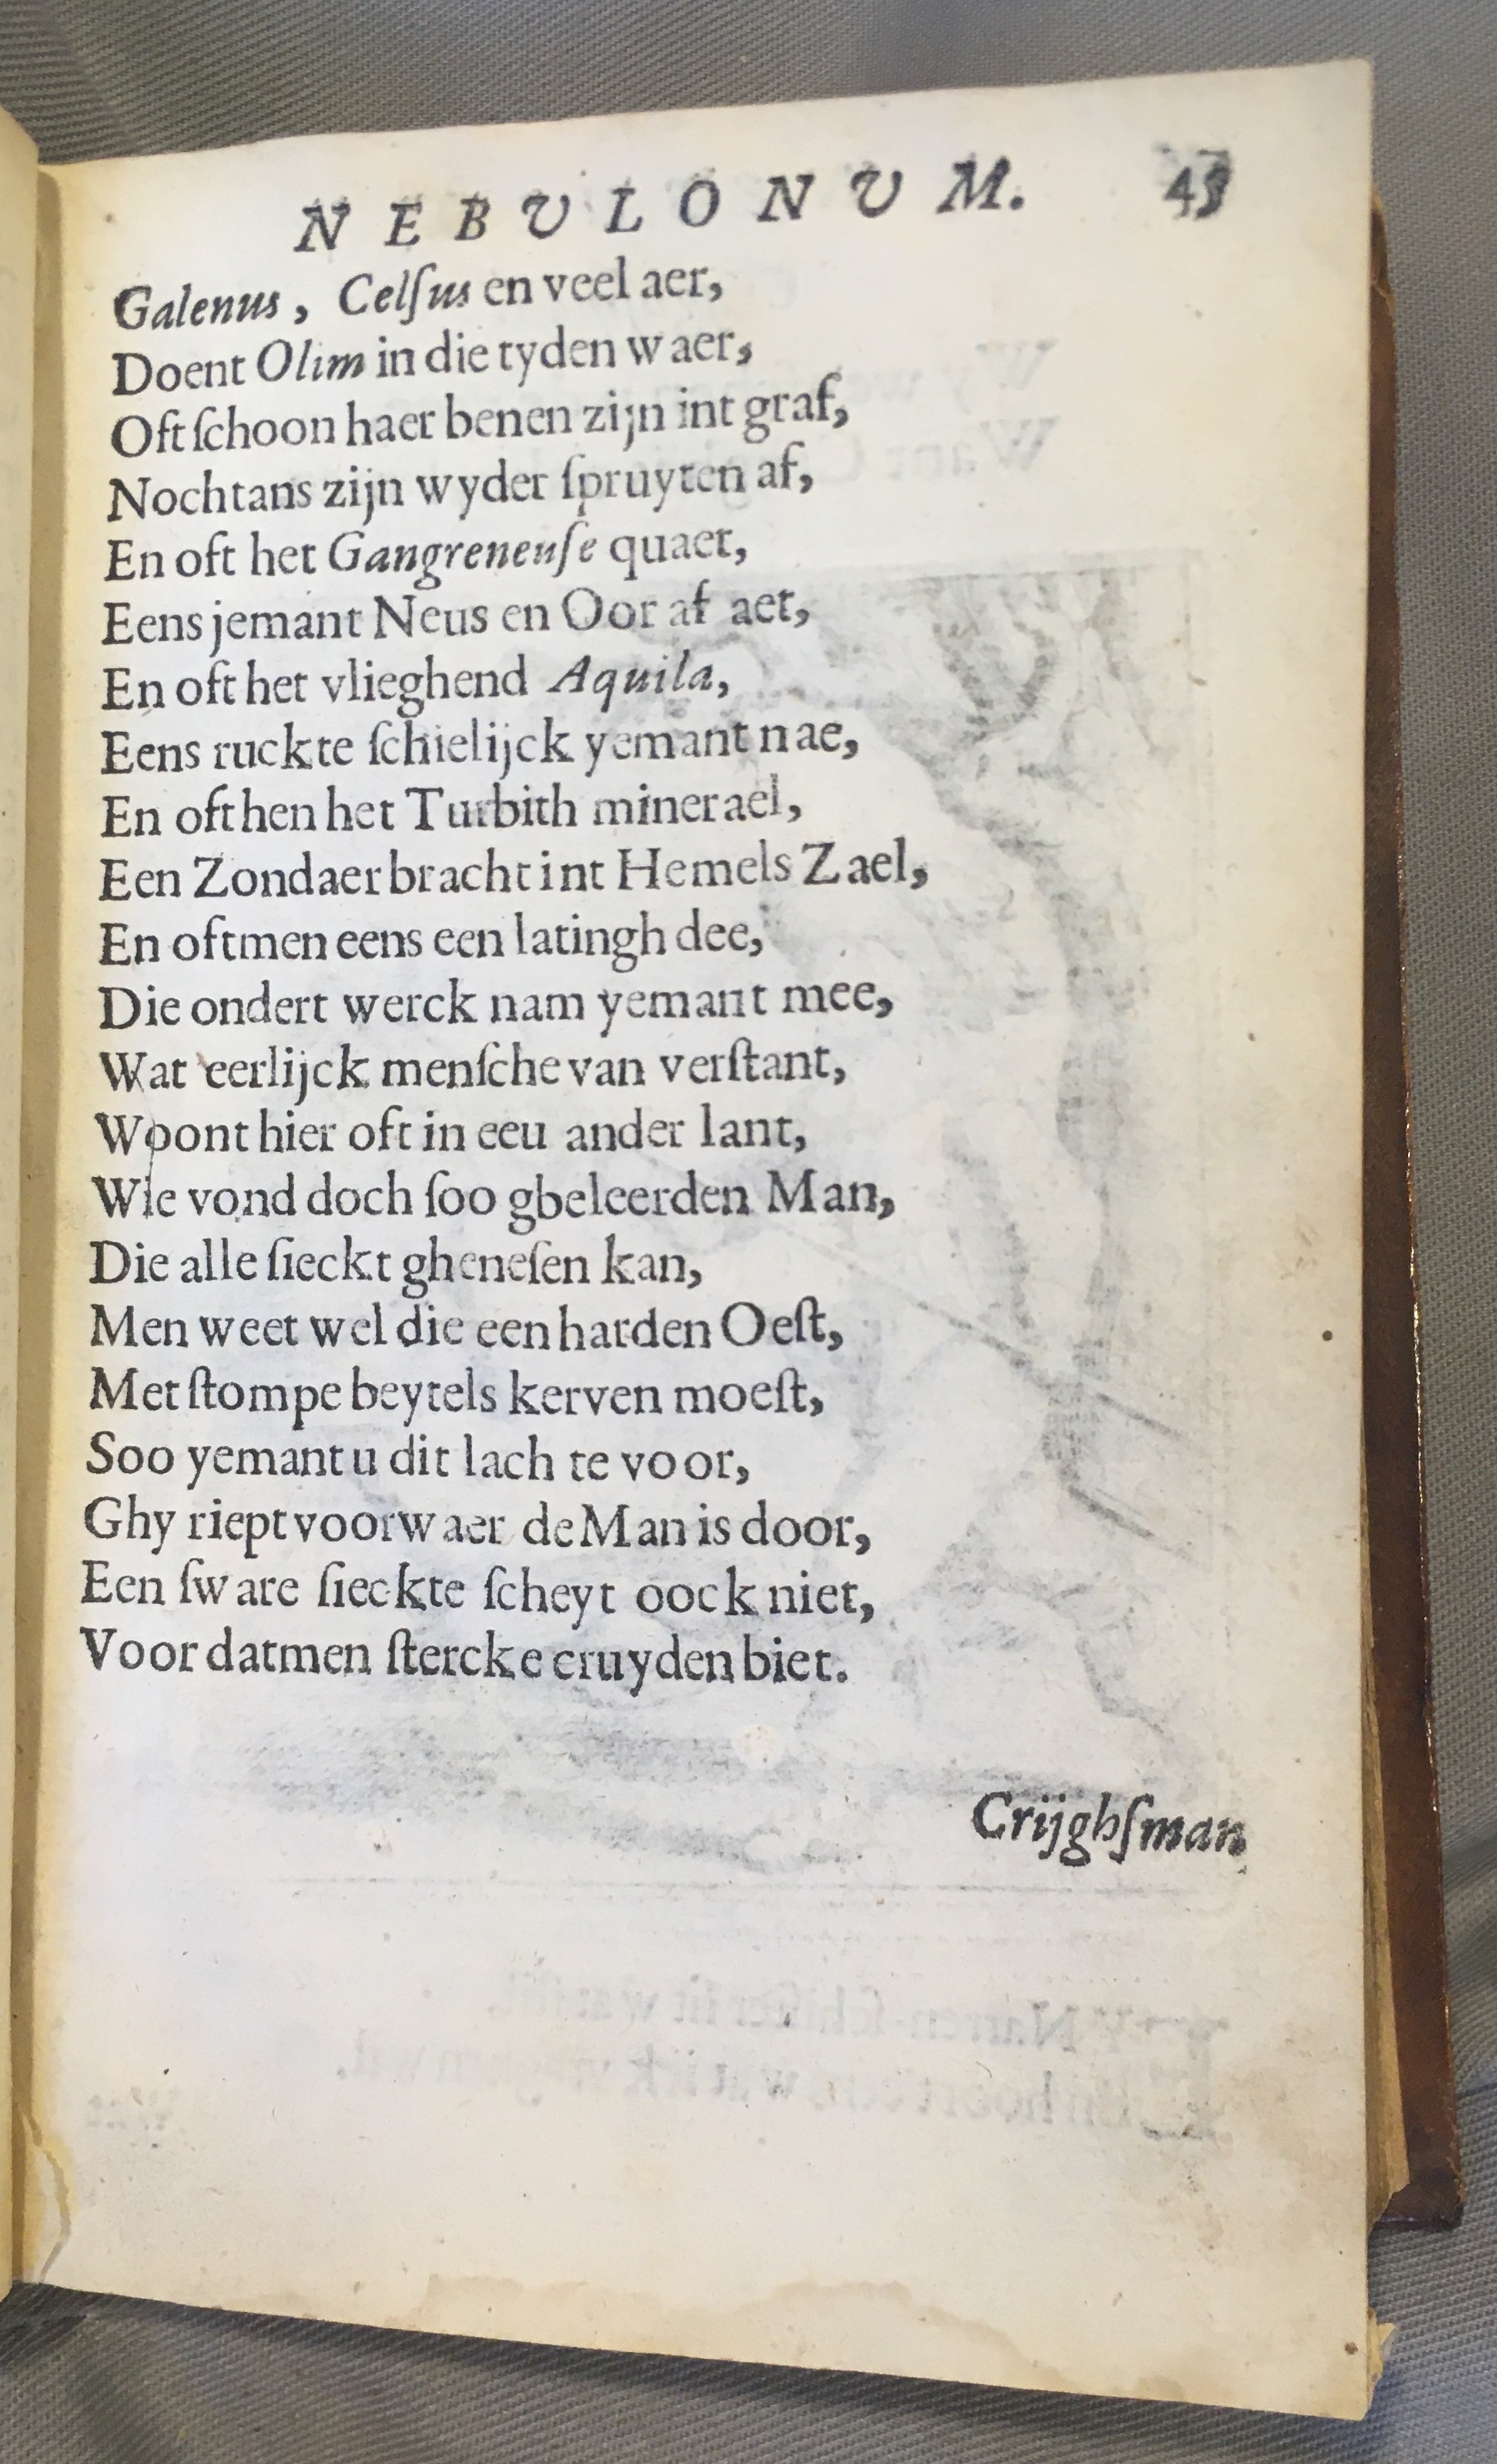 NEBULONUM.
Galenus, Celſus en veel aer,
Doent Olim in die tyden waer,
Oft ſchoon haer benen zijn int graf,
Nochtans zijn wyder ſpruyten af,
En oft het Gangreneuſe quaet,
Eens jemant Neus en Oor af aet,
En oft het vlieghend Aquila,
Eens ruckte ſchielijck yemant nae,
En oft hen het Turbith minerael,
Een Zondaer bracht int Hemels Zael,
En oftmen eens een latingh dee,
Die ondert werck nam yemant mee,
Wat eerlijck menſche van verſtant,
Woont hier oft in eeu ander lant,
Wie vond doch ſoo gbeleerden Man,
Die alle ſieckt gheneſen kan,
Men weet wel die een harden Oeſt,
Met ſtompe beytels kerven moeſt,
Soo yemant u dit lach te voor,
Ghy riept voorwaer de Man is door,
Een ſware ſieckte ſcheyt oock niet,
Voor datmen ſtercke cruyden biet.
Crijghſman